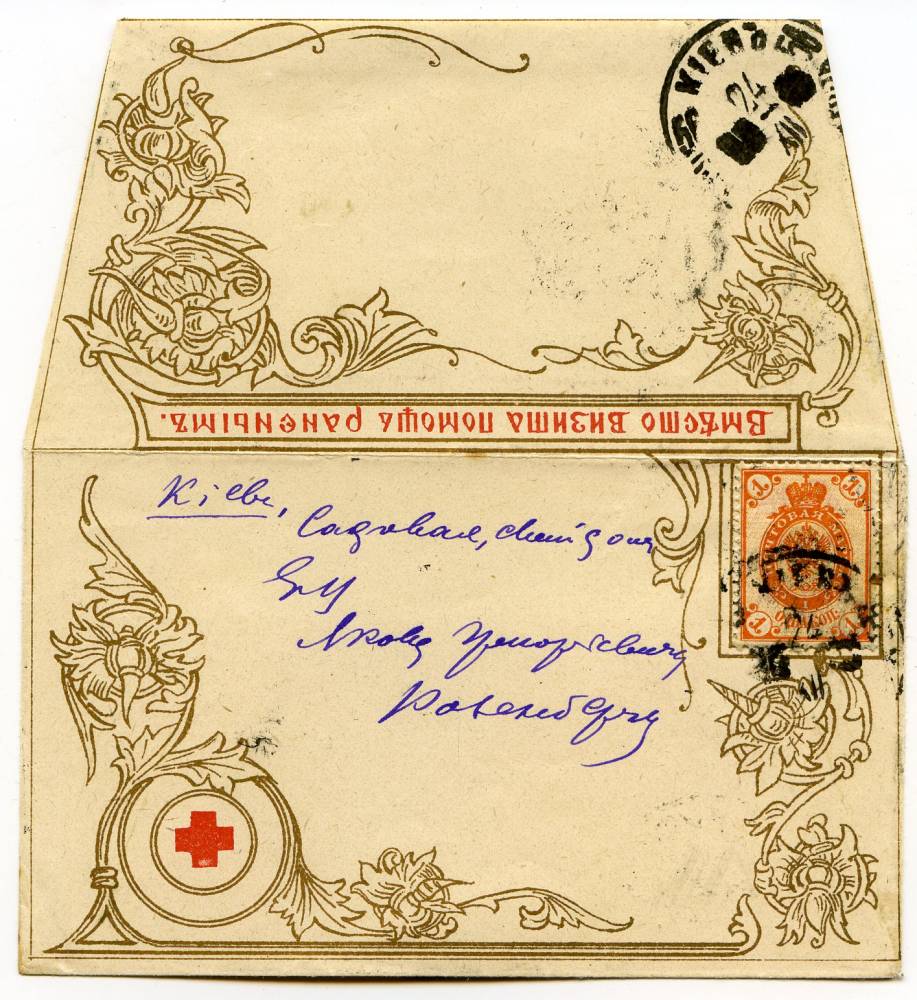 КІЕВЪ
24
Вмѣсто визита помощь раненымъ.
Кіевъ,
Садовая, свой домъ
ЕВ
Якову Григорьевичу
Розенбергу
1 1
ПОЧТОВАЯ МАРКА
1 ОДНА КОП. 1
КІЕВЪ